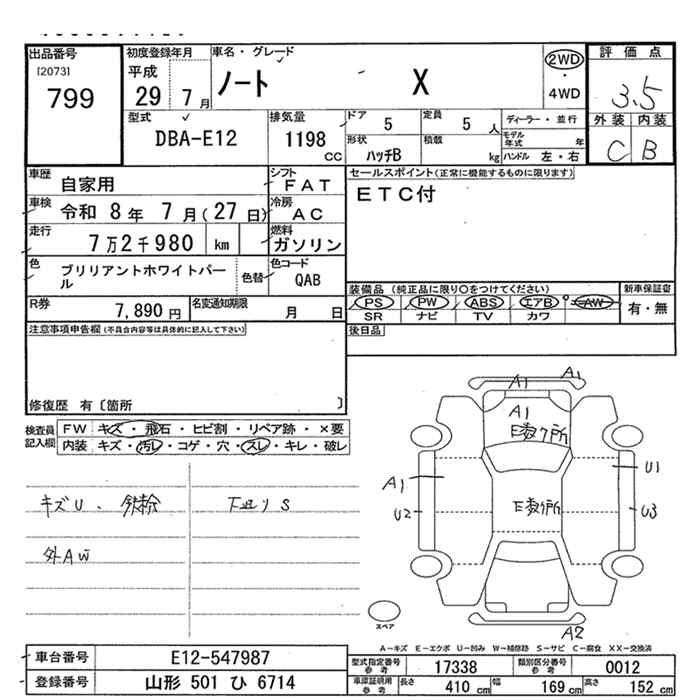 出品番号
[2073]
799
初度登録年月
平成
29 7月
車名・グレード
ノート X
2WD
・
4WD
評価点
3.5
外装 内装
C B
型式
DBA-E12
排気量
1198
cc
ドア
5
定員
5 人
形状
ハッチB
積載
kg
ディーラー・並行
モデル年式 年
ハンドル 左・右
車歴
自家用
シフト
FAT
車検
令和 8年 7月(27日)
冷房
AC
走行
7万2千980 km
燃料
ガソリン
色
ブリリアントホワイトパール
色替
色コード
QAB
R券
7,890円
名変通知期限
月 日
セールスポイント(正常に機能するものに限ります)
ETC付
装備品 (純正品に限り○をつけてください)
PS PW ABS エアB AW
SR ナビ TV カワ
新車保証書
有・無
後日品
注意事項申告欄(不具合内容等は具体的に記入して下さい)
修復歴 有〔箇所 〕
検査員記入欄
FW キズ・飛石・ヒビ割・リペア跡・×要
内装 キズ・汚レ・コゲ・穴・スレ・キレ・破レ
キズU、鉄粉
下廻りS
外AW
A1
A1
A1
E数ケ所
A1
U2
E数ケ所
U1
U3
A2
スペア
A-キズ E-エクボ U-凹み W-補修跡 S-サビ C-腐食 XX-交換済
車台番号
E12-547987
登録番号
山形 501 ひ 6714
型式指定番号
参考
17338
類別区分番号
参考
0012
車庫証明用
参考
長さ 410 cm 幅 169 cm 高さ 152 cm